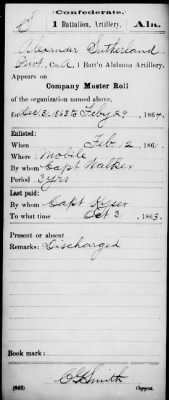 Confederate.
S 1 Battalion, Artillery. Ala.
Alexander Sutherland
Pvt., Co. A, 1 Batt'n Alabama Artillery.
Appears on
Company Muster Roll
of the organization named above,
for Dec 31, 1863 to Feby 29, 1864.
Enlisted:
When Feb 2, 186
Where Mobile
By whom Capt Walker
Period 3 yrs
Last paid:
By whom Capt Keyser
To what time Oct 3, 1863.
Present or absent
Remarks: Discharged
Book mark:
(642) Smith Copyist.